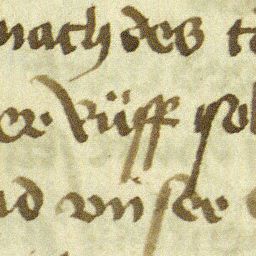 nach des
er kuͤff sol
nd vnser